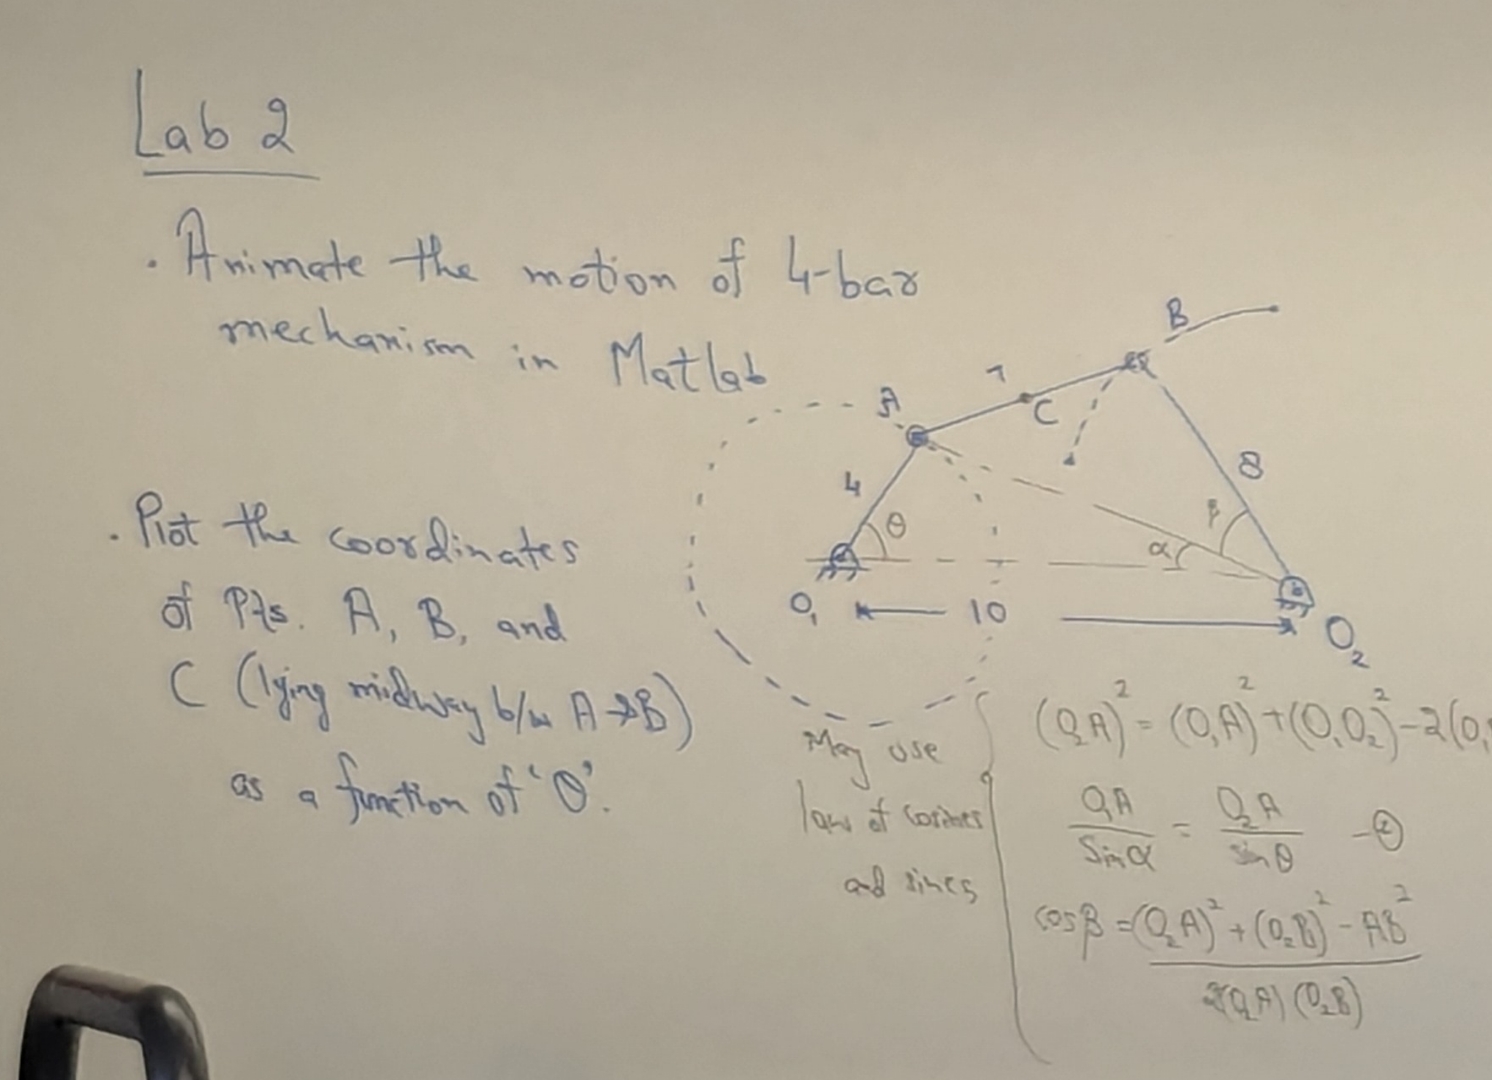 Lab 2
. Animate the motion of 4-bar
mechanism in Matlab
. Plot the coordinates
of Pts. A, B, and
C (lying midway b/w A → B)
as a function of 'θ'.
B
A
C
4
8
θ
β
α
O₁
10
O₂
May use
law of cosines
and sines
(O₂A)² = (O₁A)² + (O₁O₂)² - 2(O₁
O₁A / Sin α = O₂A / sin θ - ②
cos β = (O₂A)² + (O₂B)² - AB² / 2(O₂A)(O₂B)